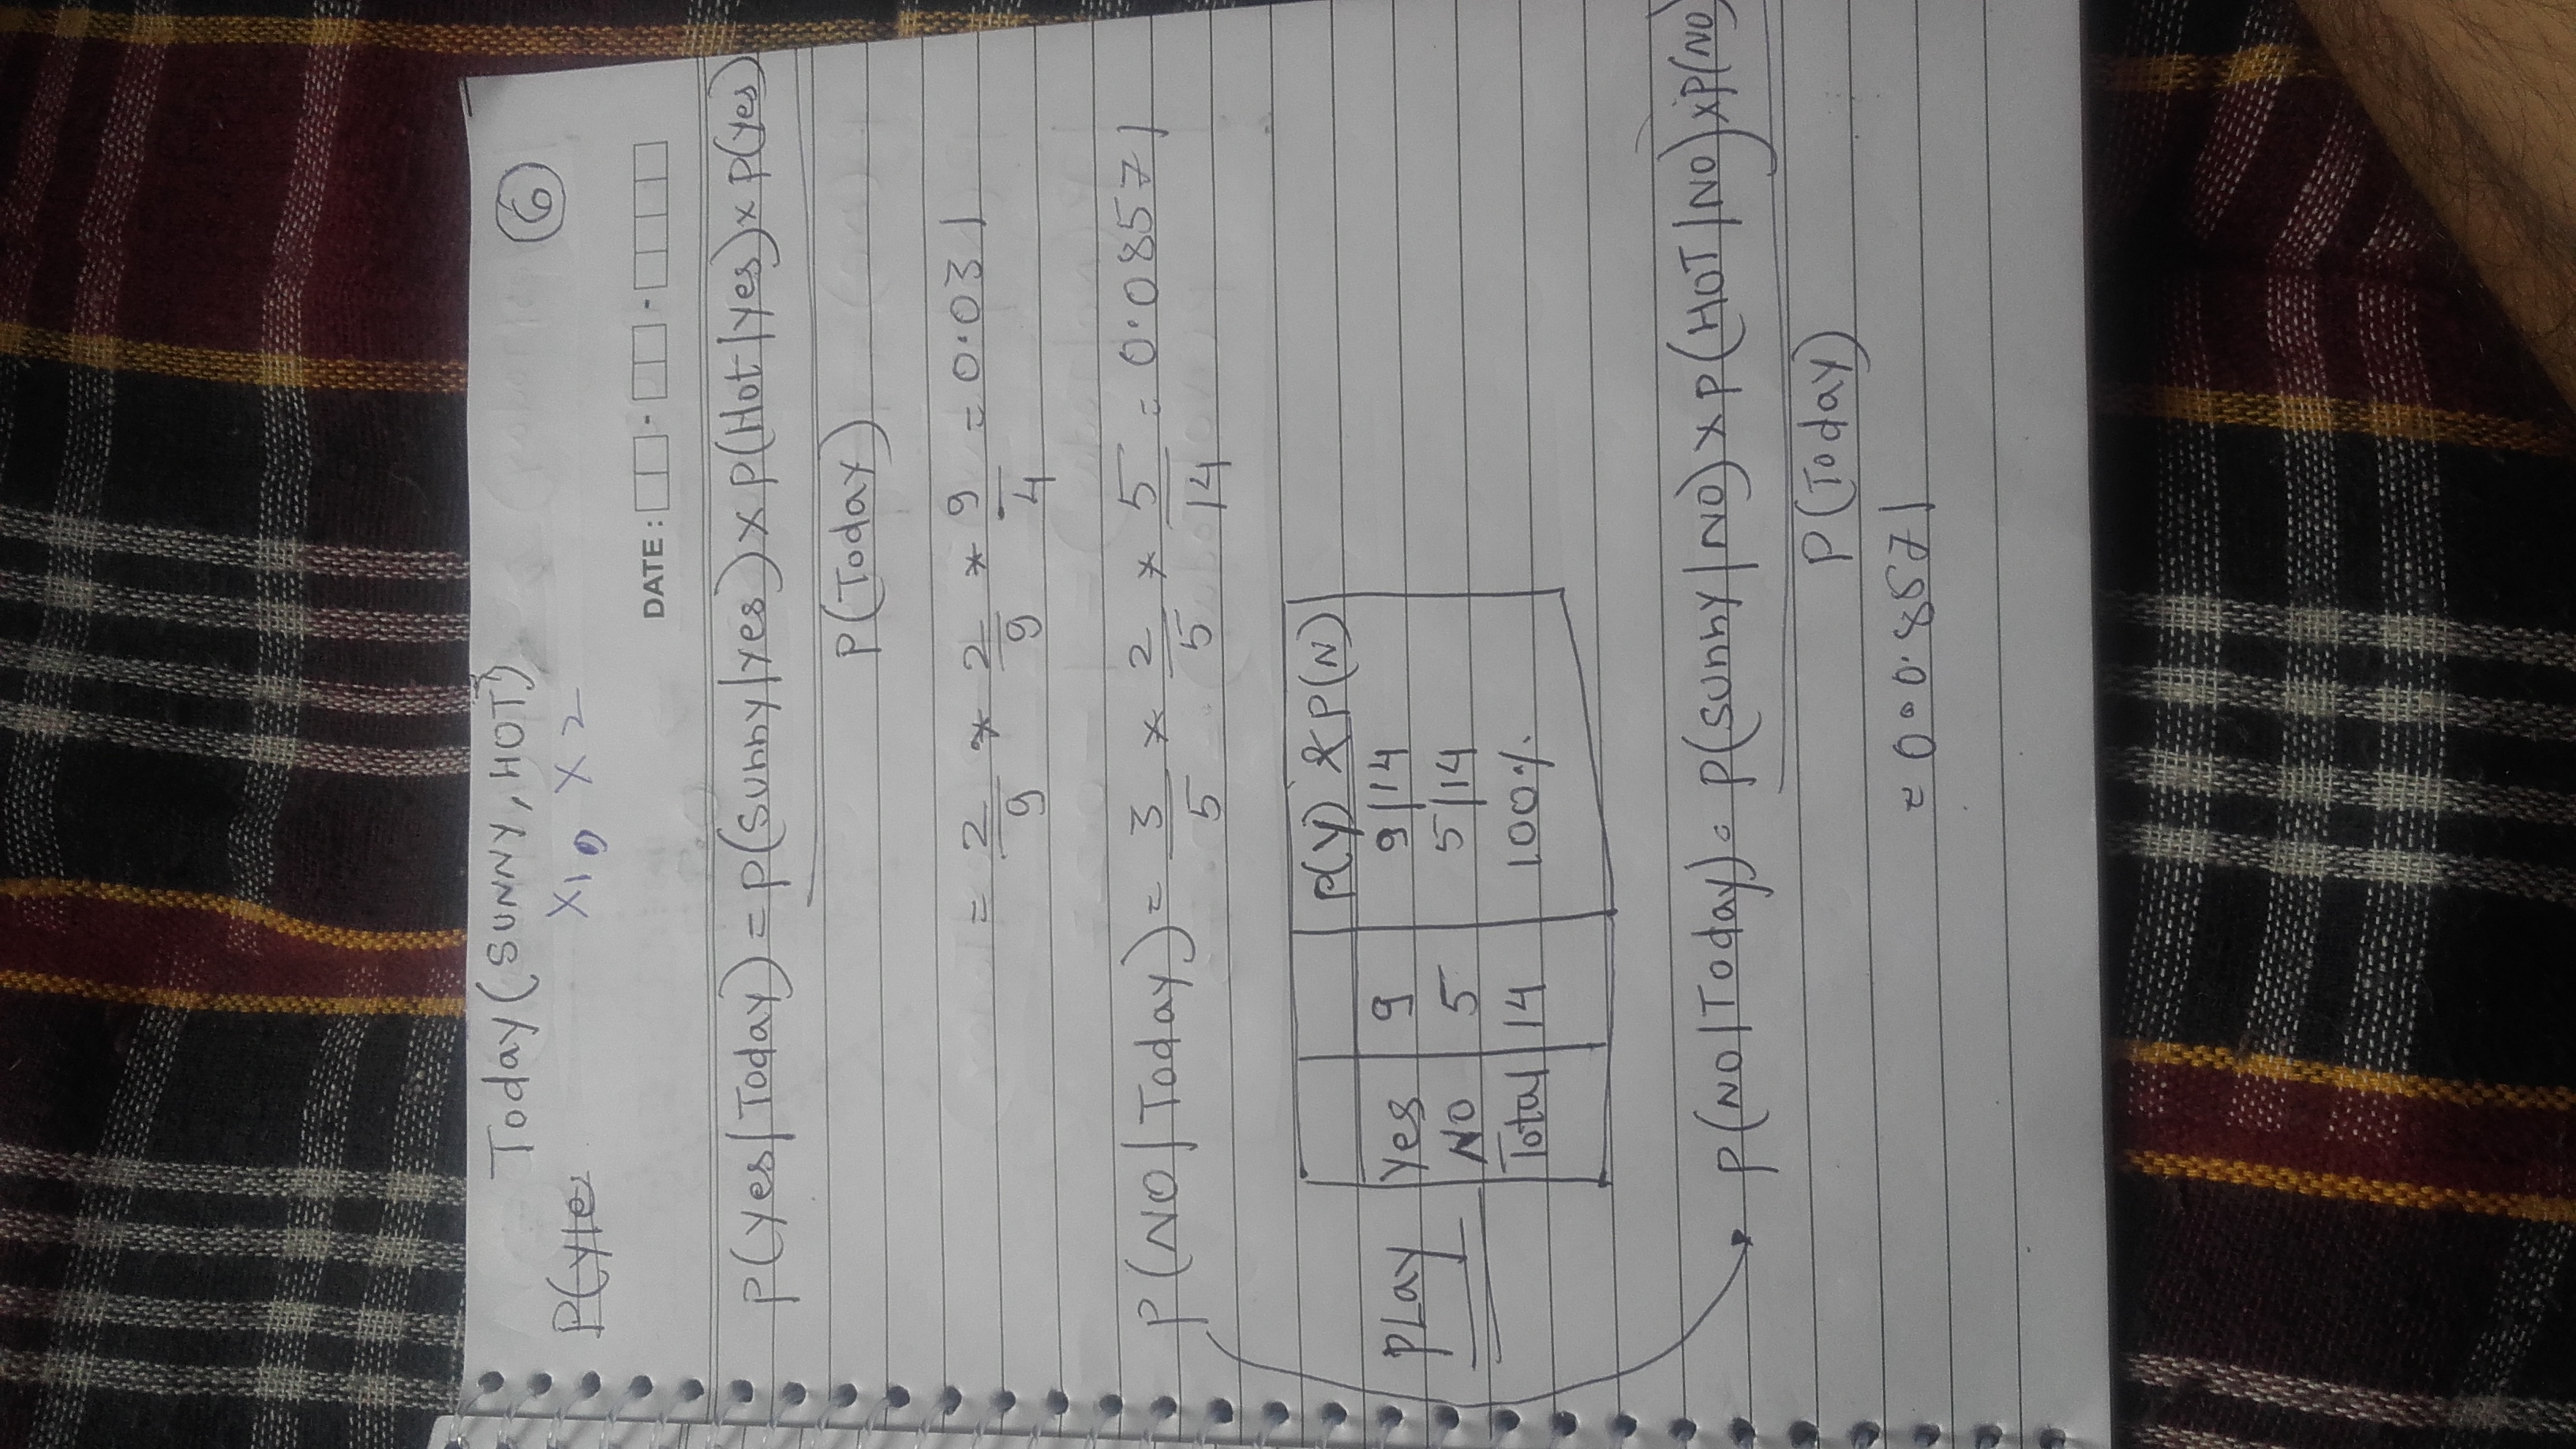 Today (SUNNY, HOT)
6
P(yle
X1, X2
DATE : - -
P(Yes/Today) = P(Sunny/Yes) x P(Hot/yes) x P(yes)
P(Today)
= 2/9 * 2/9 * 9/4 = 0.031
P(NO/Today) = 3/5 * 2/5 * 5/14 = 0.08571
P(Y) & P(N)
PLAY Yes 9 9/14
NO 5 5/14
Total 14 100%
P(NO/Today) = P(Sunny/NO) x P(HOT/NO) x P(NO)
P(Today)
= 0.0.8571